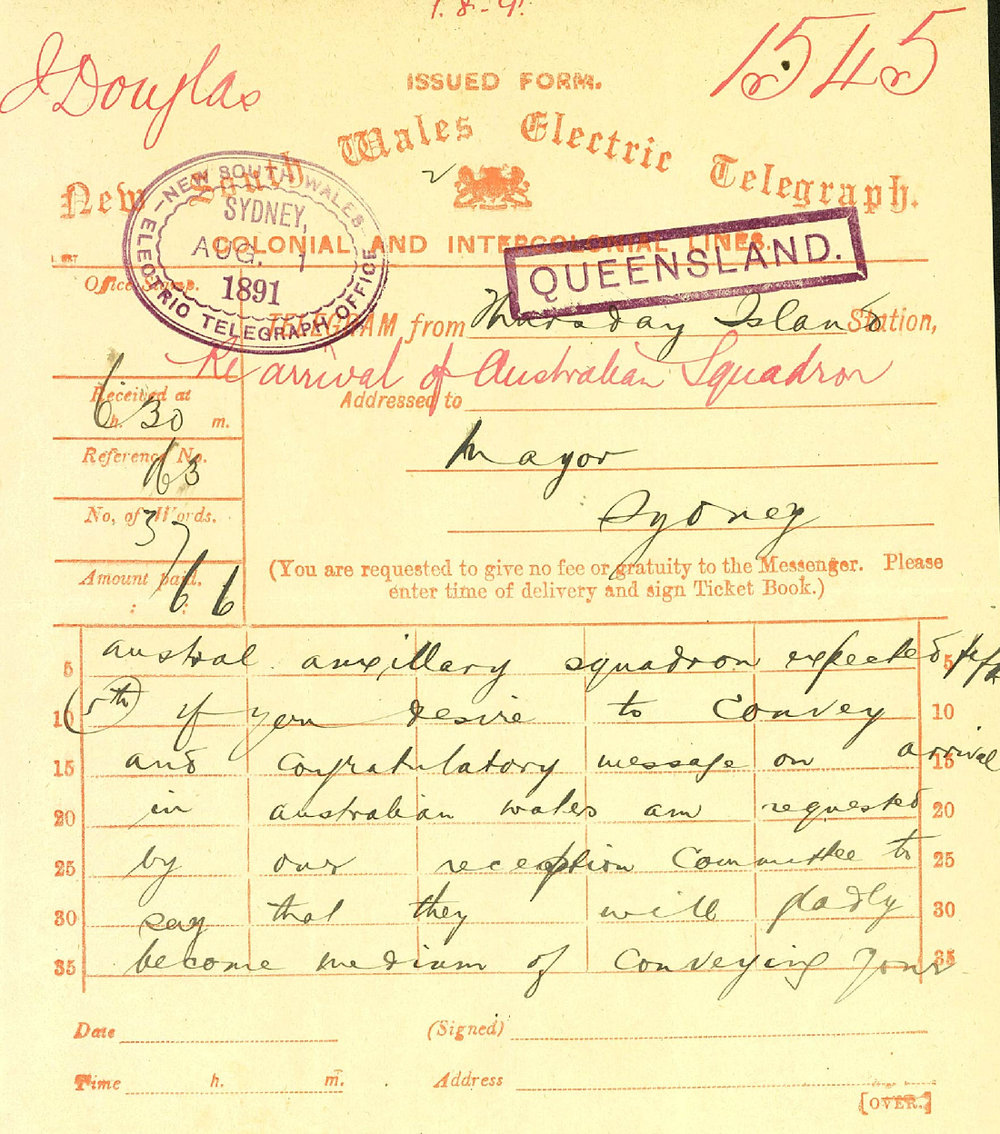 1.8.91
J Douglas
1545
ISSUED FORM.
New South Wales Electric Telegraph.
COLONIAL AND INTERCOLONIAL LINES.
NEW SOUTH WALES
SYDNEY,
AUG. 1
1891
ELECTRIC TELEGRAPH OFFICE
QUEENSLAND.
Office Stamp.
TELEGRAM from Thursday Island Station,
Re arrival of Australian Squadron
Received at
6 h. 30 m.
Addressed to
Mayor
Reference No.
63
Sydney
No, of Words.
37
Amount paid.
: : 6 6
(You are requested to give no fee or gratuity to the Messenger. Please
enter time of delivery and sign Ticket Book.)
5 austral auxillary squadron expected 5
10 5th if you desire to convey 10
15 and congratulatory message on arrival 15
20 in australian waters am requested 20
25 by our reception committee to 25
30 say that they will gladly 30
35 become medium of conveying your 35
Date (Signed)
Time h. m. Address
[OVER.]